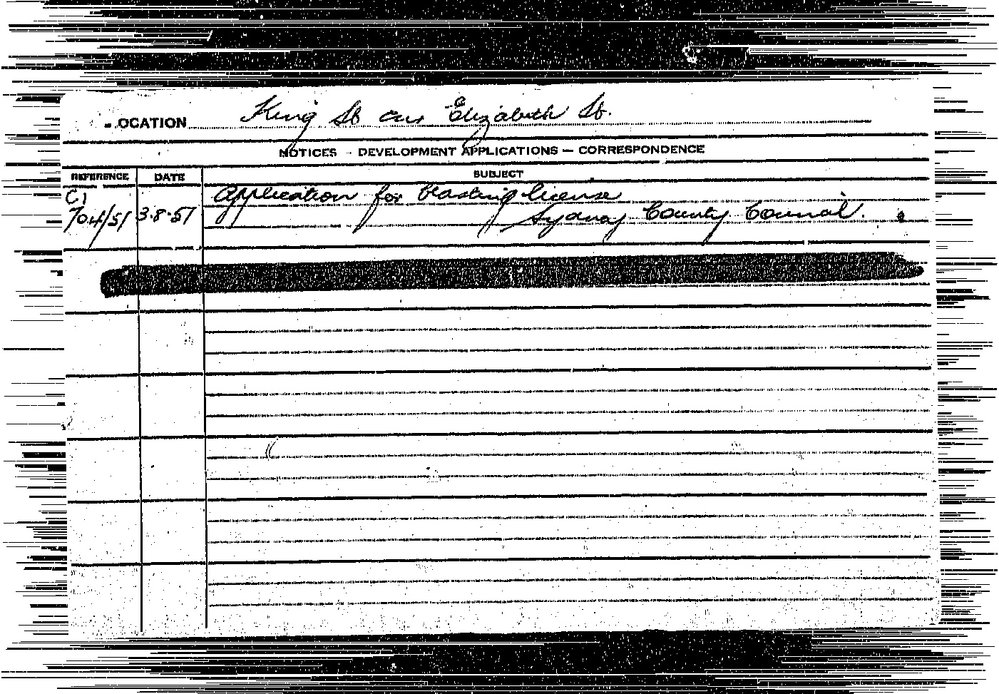 LOCATION King St cnr Elizabeth St.
NOTICES - DEVELOPMENT APPLICATIONS — CORRESPONDENCE
REFERENCE DATE SUBJECT
C1 Application for blasting license
704/51 3.8.51 Sydney County Council.